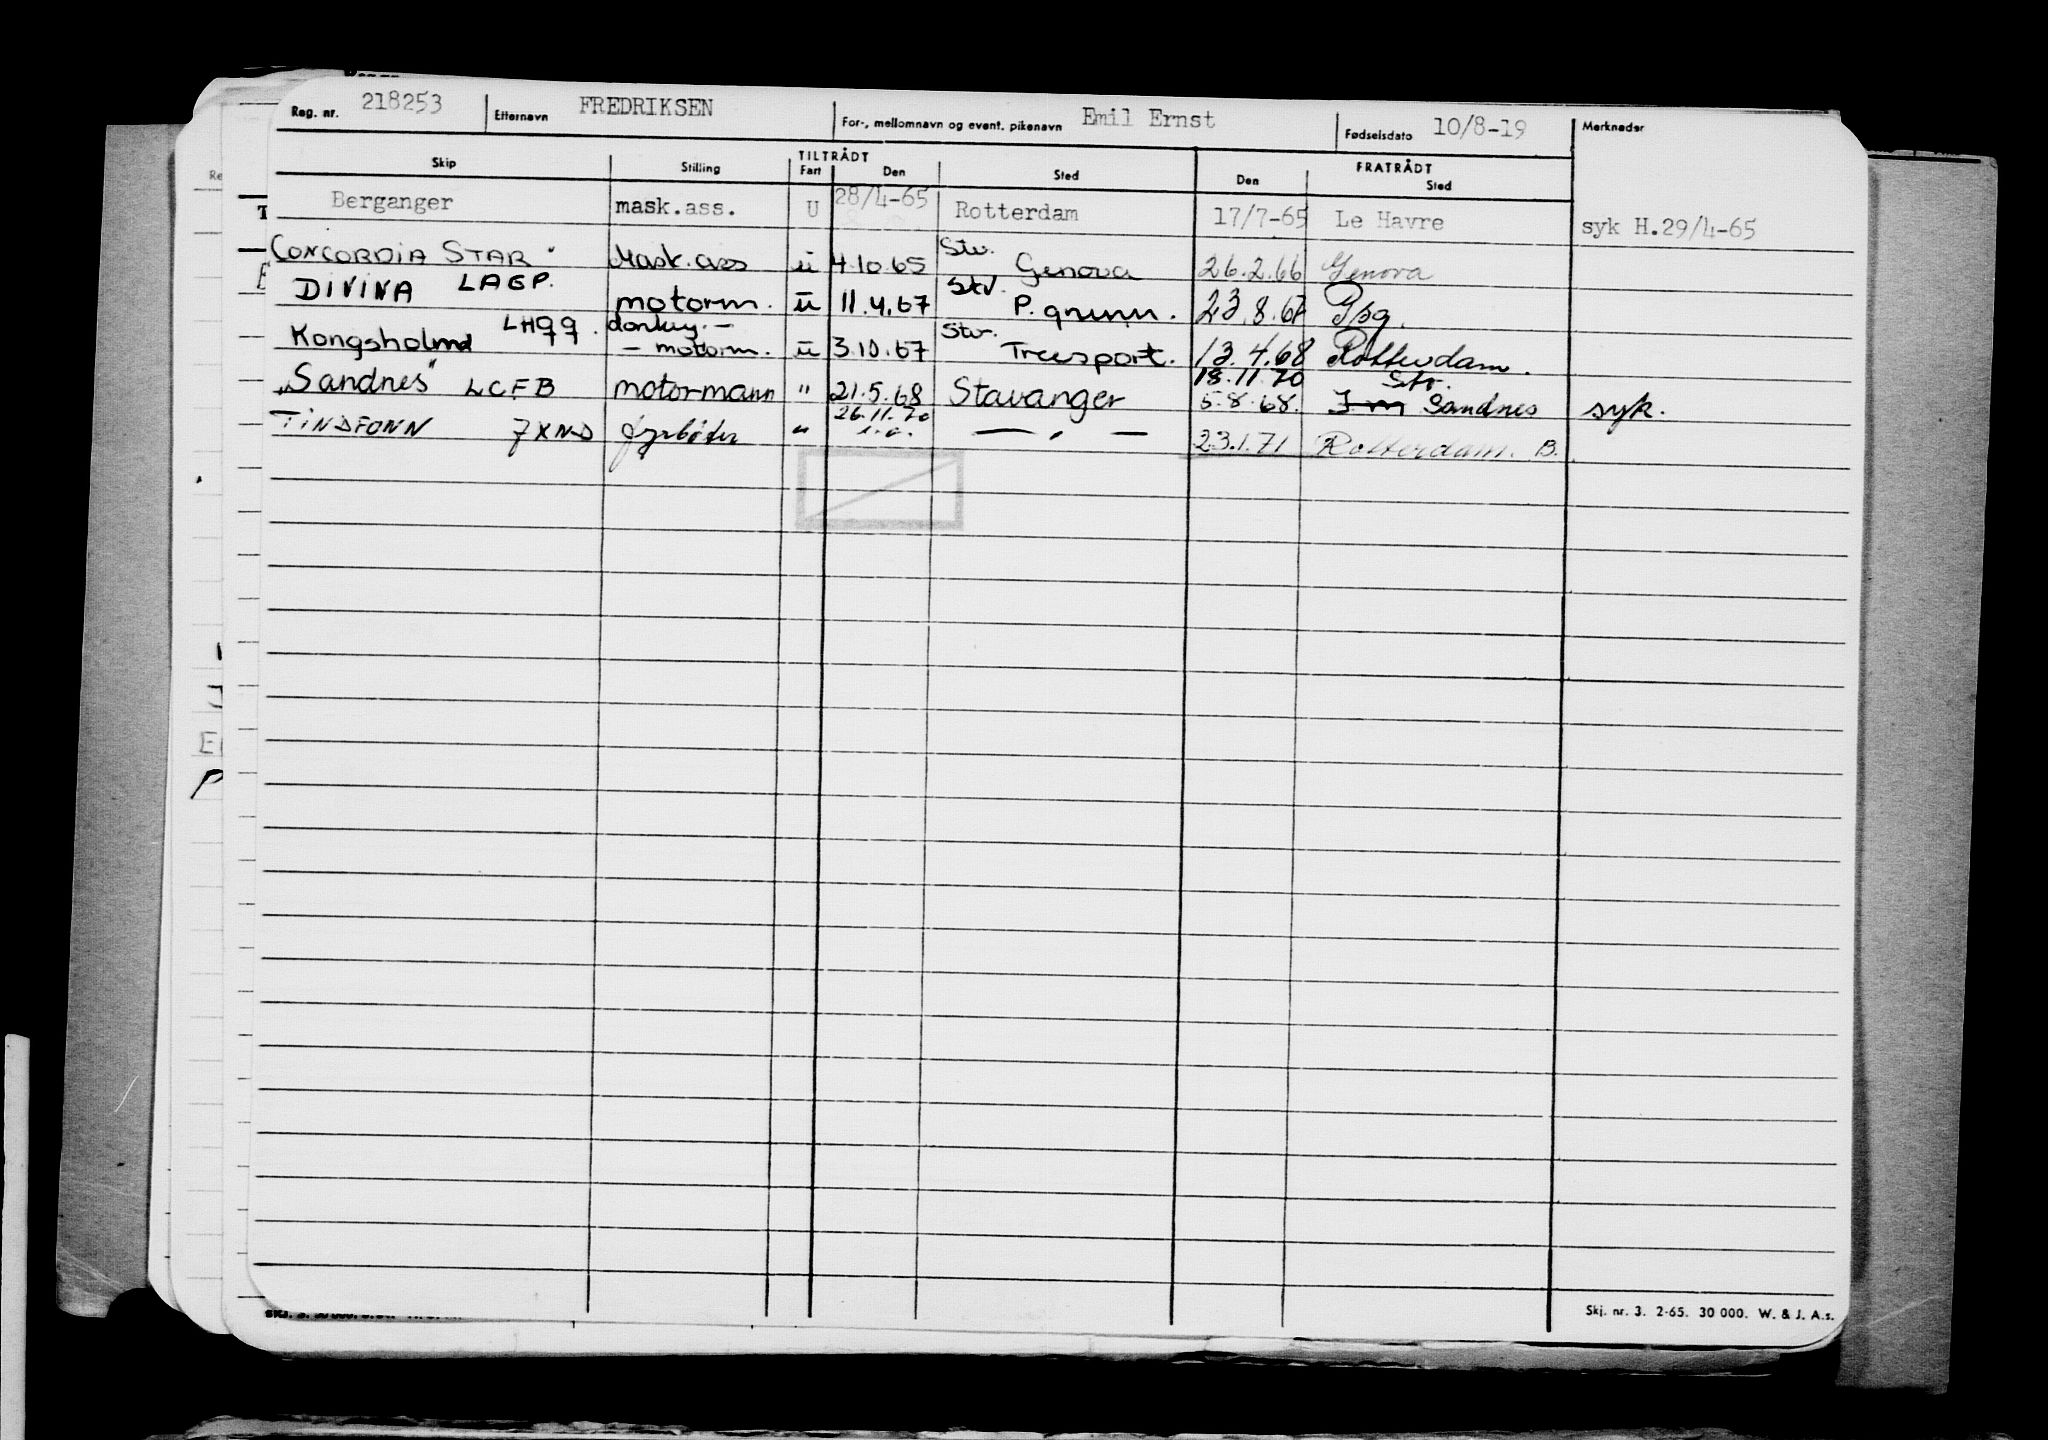 Reg. nr. 218253 Etternavn FREDRIKSEN For-, mellomnavn og event. pikenavn Emil Ernst Fødselsdato 10/8-19 Merknader
TILTRÅDT FRATRÅDT
Skip Stilling Fart Den Sted Den Sted
Berganger mask.ass. U 28/4-65 Rotterdam 17/7-65 Le Havre syk H.29/4-65
CONCORDIA STAR Mask.ass u 4.10.65 Stv. Genova 26.2.66 Genova
DIVINA LAEP. motorm. u 11.4.67 Stv. P. grunn. 23.8.67 Pbg.
Kongsholm LHQQ. donkey.-
- motorm. u 3.10.67 Stv. Treesport. 13.4.68 Rotterdam.
"Sandnes" LCFB motormann " 21.5.68 Stavanger 5.8.68. Sandnes syk.
18.11.70 Stv.
TINDFONN JXND fyrbøter " 26.11.70 — " — 23.1.71 Rotterdam. B.
Skj. nr. 3. 2-65. 30 000. W. & J. A.s.